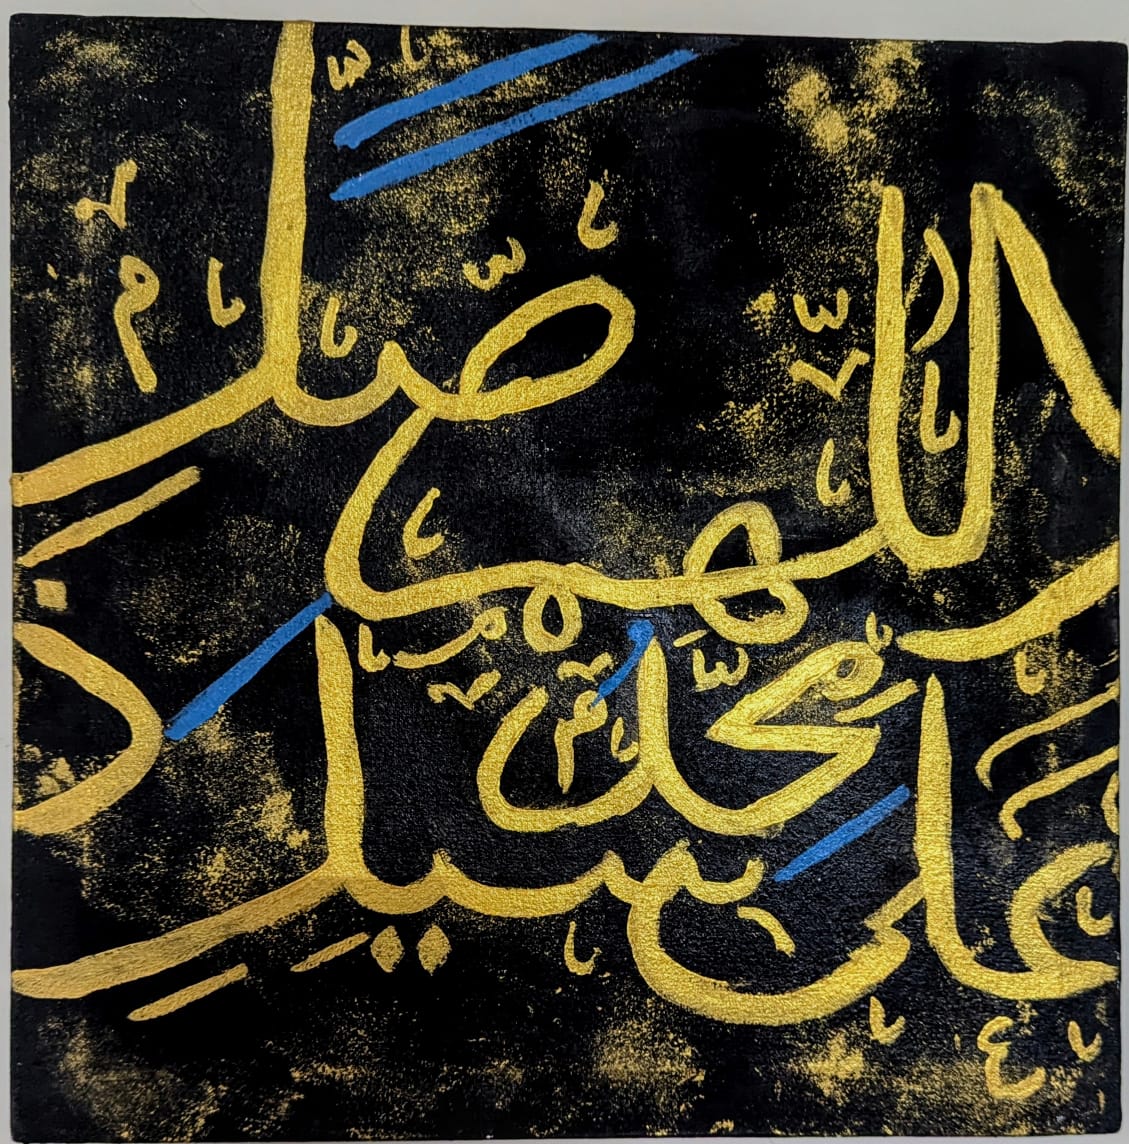 اللهم صل
على سيد
محمد